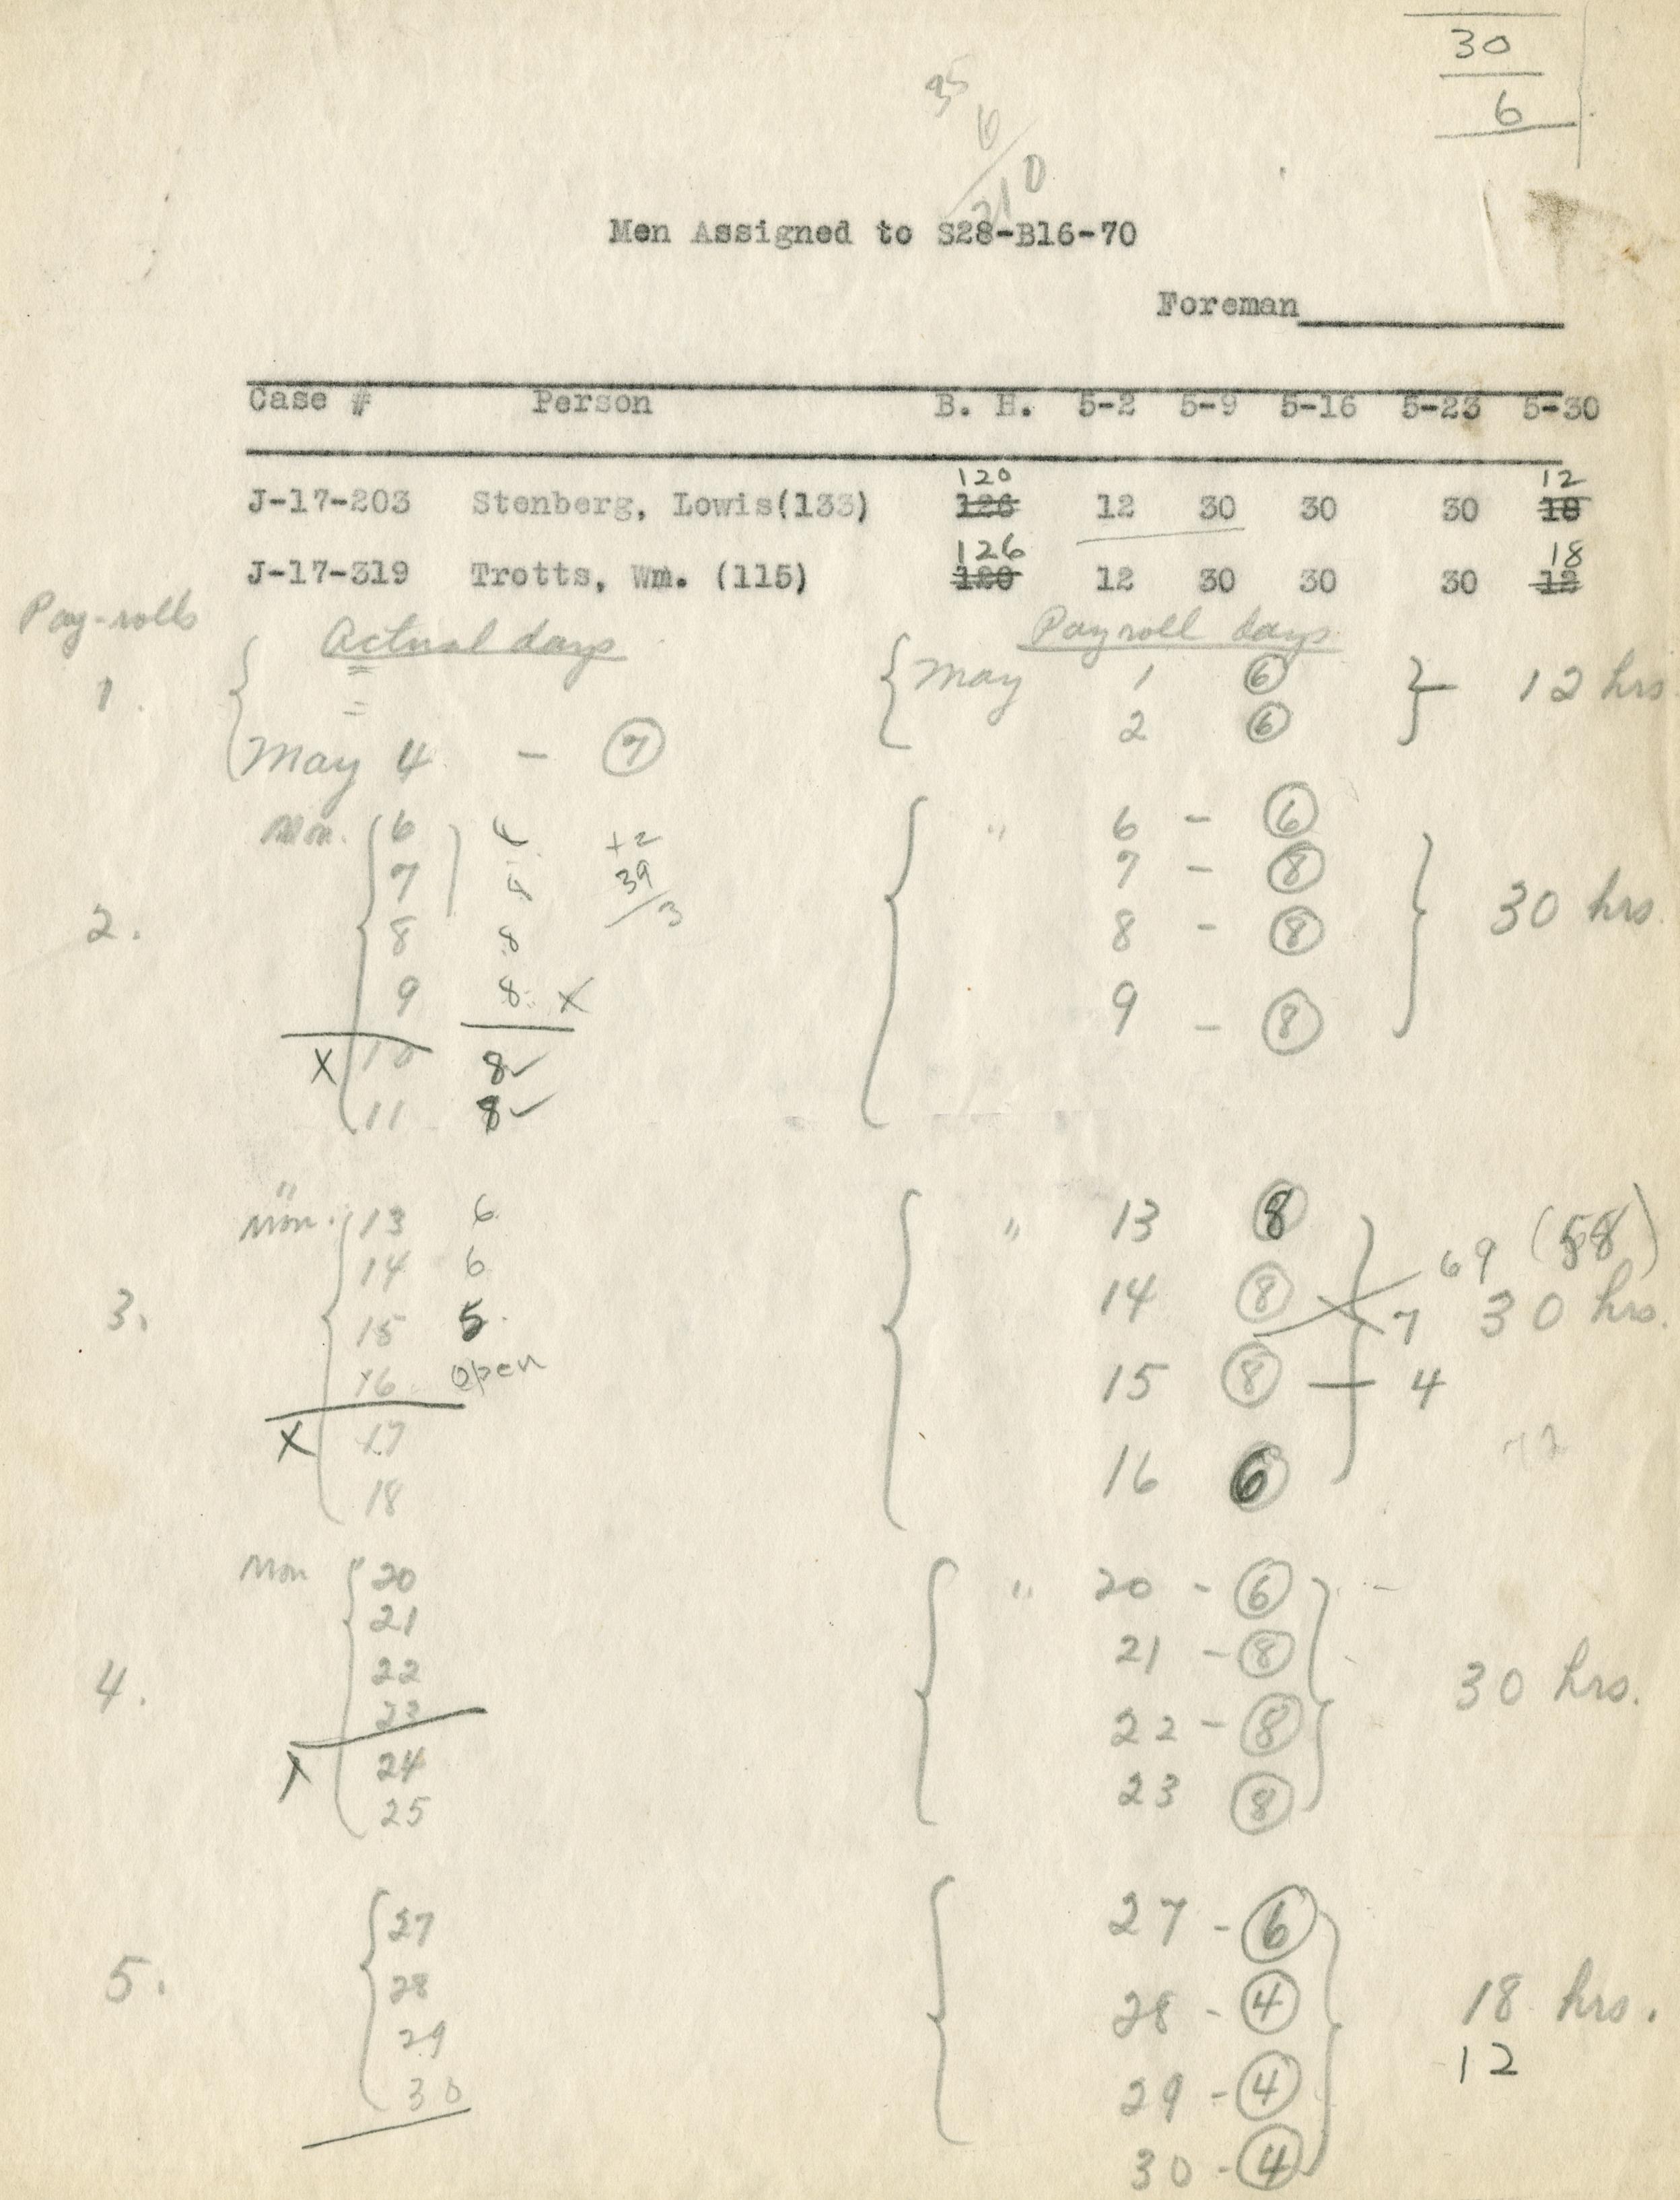 30
6
35
6
210
Men Assigned to S28-B16-70
Foreman
Case # Person B. H. 5-2 5-9 5-16 5-23 5-30
120 12
J-17-203 Stenberg, Lowis(133) 126 12 30 30 30 18
126 18
J-17-319 Trotts, Wm. (115) 120 12 30 30 30 12
Pay-rolls Actual days Payroll days
1. May 1 6 12 hrs
2 6
May 4 - 7
Mon. 6 4 +2 " 6 - 6
7 4 39 7 - 8
2. 8 8 3 8 - 8 30 hrs.
9 8 x 9 - 8
x 10 8✓
11 8✓
"
Mon. 13 6 " 13 8 69 (58)
14 6 14 8 7 30 hrs.
3. 15 5 15 8 - 4
16 open 16 6
x 17
18
Mon 20 " 20 - 6
21 21 - 8
4. 22 22 - 8 30 hrs.
23 23 8
x 24
25
27 27 - 6
5. 28 28 - 4 18 hrs.
29 29 - 4 12
30 30 - 4